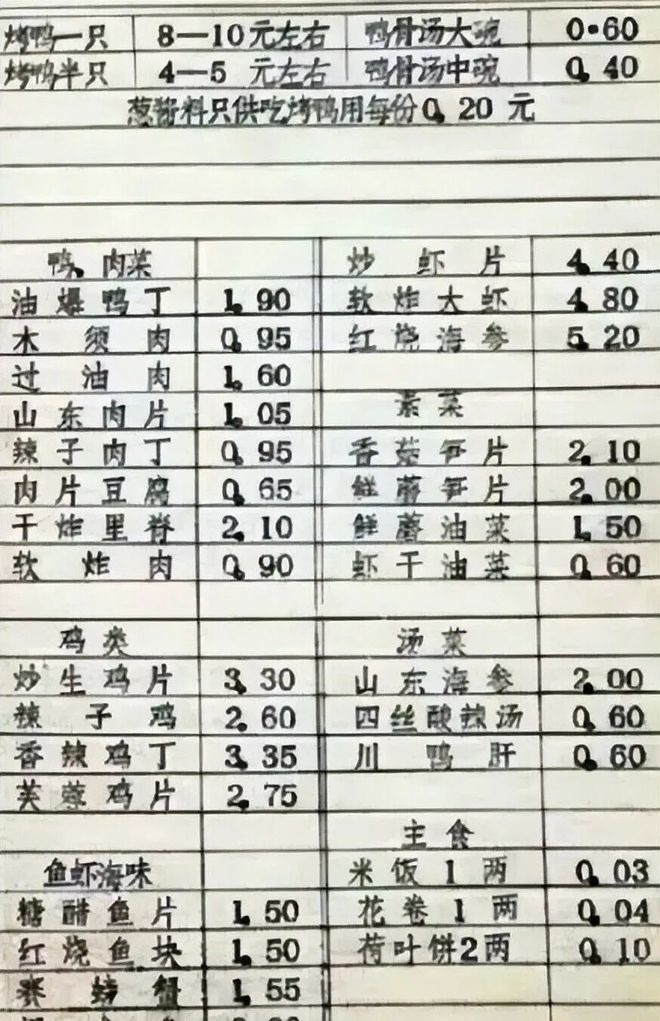 烤鸭一只 8—10元左右 鸭骨汤大碗 0.60
烤鸭半只 4—5 元左右 鸭骨汤中碗 0.40
葱酱料只供吃烤鸭用每份0.20 元
鸭、肉菜
油爆鸭丁 1.90
木须肉 0.95
过油肉 1.60
山东肉片 1.05
辣子肉丁 0.95
肉片豆腐 0.65
干炸里脊 2.10
软炸肉 0.90
鸡类
炒生鸡片 3.30
辣子鸡 2.60
香辣鸡丁 3.35
芙蓉鸡片 2.75
鱼虾海味
糖醋鱼片 1.50
红烧鱼块 1.50
赛螃蟹 1.55
炒虾片 4.40
软炸大虾 4.80
红烧海参 5.20
素菜
香菇笋片 2.10
鲜蘑笋片 2.00
鲜蘑油菜 1.50
虾干油菜 0.60
汤菜
山东海参 2.00
四丝酸辣汤 0.60
川鸭肝 0.60
主食
米饭1两 0.03
花卷1两 0.04
荷叶饼2两 0.10